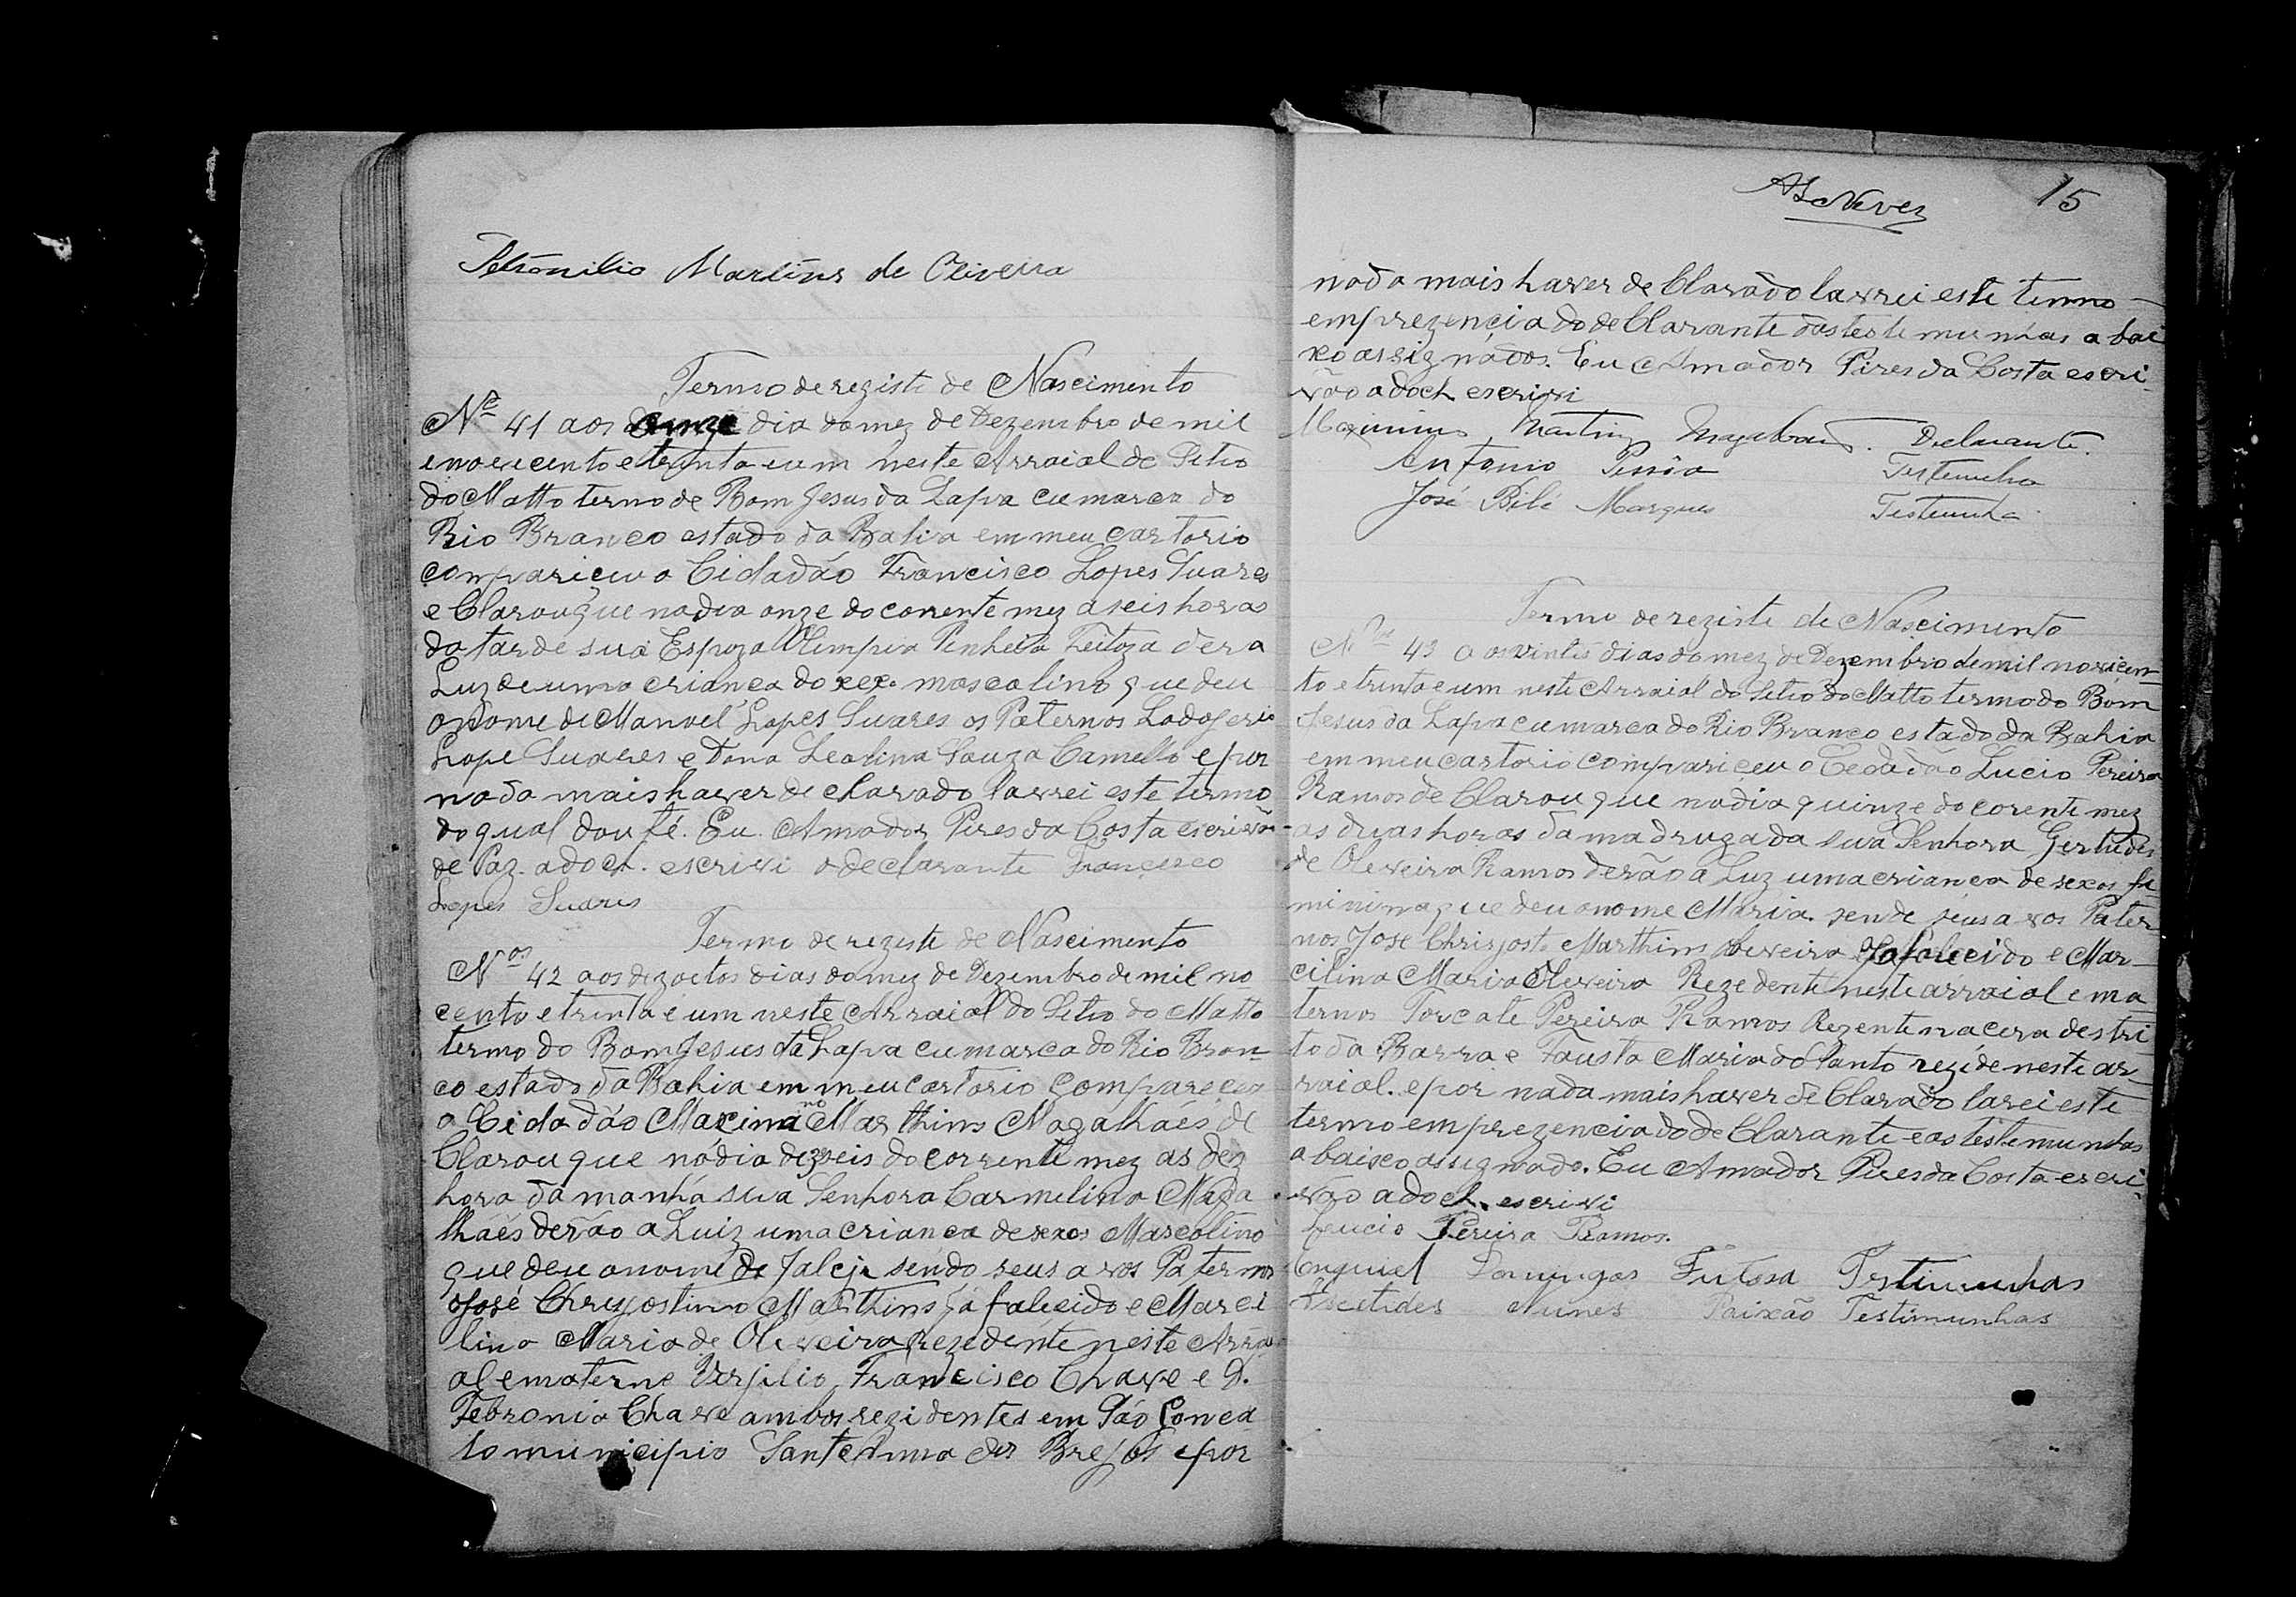 Petronilio Martins de Oliveira
Termo de registe de Nascimento
Nº 41 aos onze dia do mez de Dezembro de mil
e novecento e trinta e um neste Arraial do Sitio
do Matto termo de Bom Jesus da Lapa cumarca do
Rio Branco estado da Bahia em meu cartorio
compariceu o Cidadão Francisco Lopes Suares
e Clarou que no dia onze do corrente mez a seis horas
da tarde sua Espoza Olimpia Pinheiro Feitoza dera
Luz de uma criança do sexo mascolino que deu
o nome de Manoel Lopes Suares os Paternos Lodogerio
Lope Suares e Dona Leolina Souza Camello e por
nada mais haver de clarado lavrei este termo
do qual dou fé. Eu Amador Pires da Costa escrivão
de Paz adoch. escrivi o declarante Francisco
Lopes Suares
Termo de registe de Nascimento
Nos 42 aos dezoctos dias do mez de Dezembro de mil no
cento e trinta e um neste Arraial do Sitio do Matto
termo do Bom Jesus da Lapa cumarca do Rio Bran
co estado da Bahia em meu cartorio compareceu
o Cidadão Maximino Marthins Magalhaés de
Clarou que nó dia dezseis do corrente mez as dez
hora da manhá sua Senhora Carmelina Maga
lhaés derão a Luiz uma crianca de sexos Mascolino
que deu o nome de Jalcy sendo seus avos Paternos
José Chryzostimo Marthins já falicido e Marci
lina Maria de Oliveira rezedente neste Arrai
al e materne Virjilio Francisco Chave e D.
Febronia Chave ambos rezidentes em São Gonca
lo municipio Sante Anna dos Brejos e por
ASNeves 15
nada mais haver de Clarado lavrei este termo
em prezencia do de Clarante das testemunhas a bai
xo assignados. Eu Amador Pires da Costa escri
vão adoch escrivi
Maximino Martins Magalhaes. Declarante.
Antonio Pessôa Testemunha
José Bibi Marques Testemunha
Termo de registe de Nascimento
Nos 43 a os vintes dias do mez de Dezembro de mil novicen
to e trinta e um neste Arraial do Sitio do Matto termo do Bom
Jesus da Lapa cumarca do Rio Branco estado da Bahia
em meu cartorio compariceu o Cedadão Lucio Pereira
Ramos de Clarou que no dia quinze do corente mez
as duas horas da madrugada sua Senhora Gertudes
de Oleveira Ramos derão a Luz uma crianca de sexos fe
minina que deu o nome Maria. sende seus avos Pater
nos Jose Chrizosto Marthins Oliveira Ja falecido e Mar
cilina Maria Oliveira Rezedente neste arraial e ma
ternos Torcate Pereira Ramos Rezente na cera destri
to da Barra e Fausta Maria do Santo rezide neste ar
raial. e por nada mais haver de Clarado larei este
termo em prezencia do de Clarante e as testemunhas
a baixo assignado. Eu Amador Pires da Costa escri
vão adoch. escrivi
Lucio Pereira Ramos.
Domingos Fitosa Testimunhas
Nunes Paixão Testimunhas